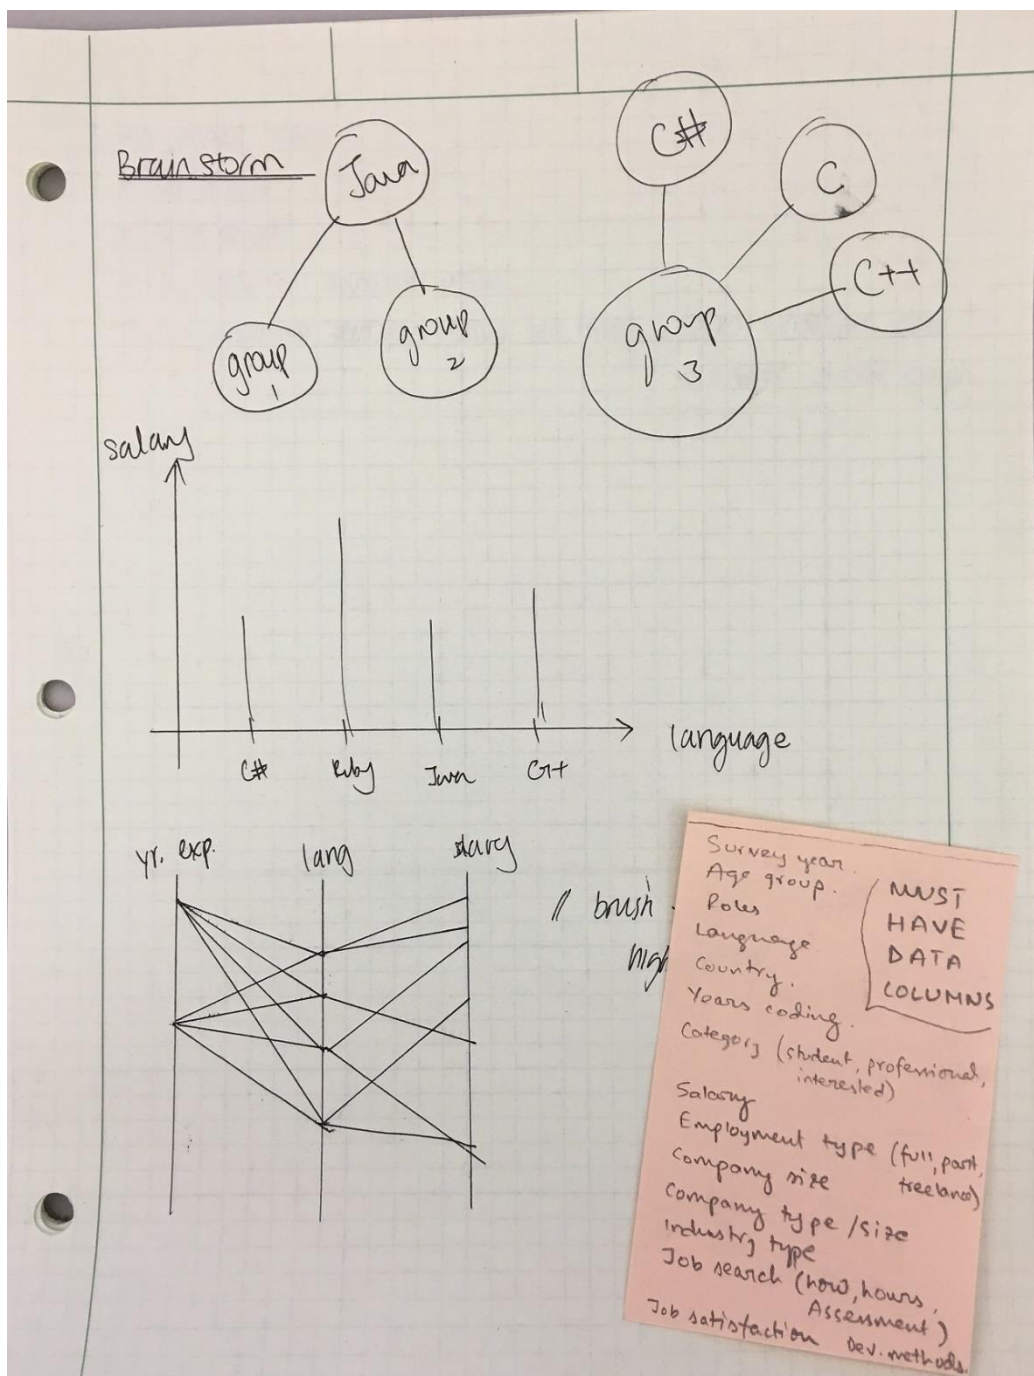 Brainstorm
Java
C#
C
C++
group
1
group
2
group
3
salary
C#
Ruby
Java
C++
language
yr. exp.
lang
// brush
high
Survey year.
Age group.
Roles
Language
Country.
Years coding.
MUST
HAVE
DATA
COLUMNS
Category (student, professional,
interested)
Salary
Employment type (full, part,
freelance)
Company size
Company type / size
Industry type
Job search (how, hours,
Assessment)
Job satisfaction Dev. methods.